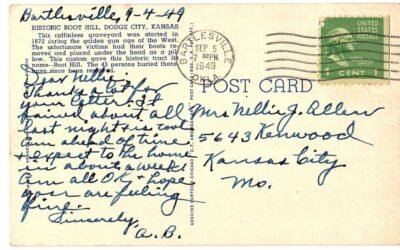 Bartlesville, 9-4-49
HISTORIC BOOT HILL, DODGE CITY, KANSAS
This coffinless graveyard was started in
1872 during the golden gun age of the West.
The unfortunate victims had their boots re-
moved and placed under the head as a pil-
low. This custom gave this historic tract its
name—Boot Hill. The 43 persons buried there
have since been
Dear Nellie:
Thanks a lot for
your letter. It
rained about all
last night & is cool
Am ahead of time
& expect to be home
in about a week
Am all O.K. & hope
you are feeling
fine.
Sincerely,
A.B.
BARTLESVILLE
SEP 5
2 30 PM
1949
OKLA.
1 CENT 1
POST CARD
Mrs Nellie J. Allen
5643 Kenwood
Kansas City
Mo.